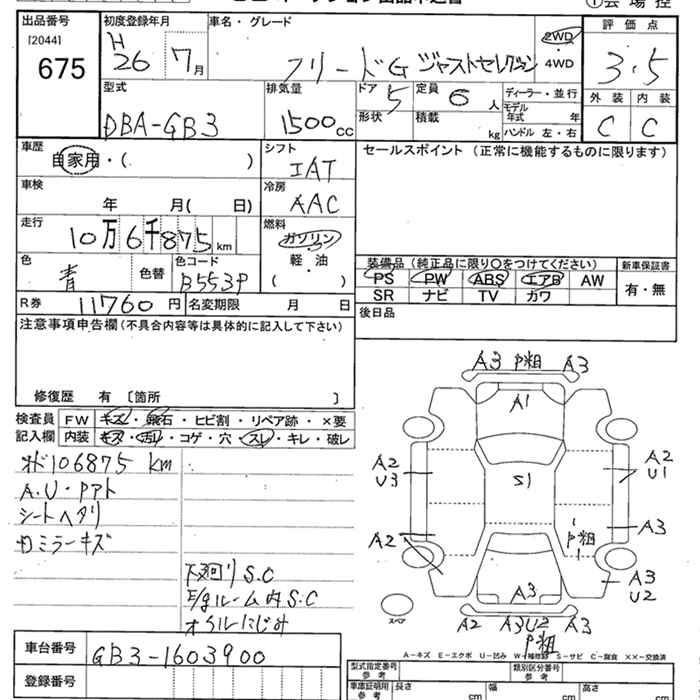 出品番号
[2044]
675
初度登録年月
H
26 7月
車名・グレード
フリードG ジャストセレクション
2WD
・
4WD
評価点
3.5
外装 内装
C C
型式
DBA-GB3
排気量
1500cc
ドア 5
形状
定員 6 人
積載 kg
ディーラー・並行
モデル
年式 年
ハンドル 左・右
車歴
自家用・( )
シフト
IAT
車検
年 月( 日)
冷房
AAC
走行
10万6千875km
燃料
ガソリン
・
軽・油
( )
色
青
色替
色コード
B553P
R券 11760円
名変期限 月 日
セールスポイント(正常に機能するものに限ります)
装備品(純正品に限り〇をつけてください)
PS PW ABS エアB AW
SR ナビ TV カワ
新車保証書
有・無
後日品
注意事項申告欄(不具合内容等は具体的に記入して下さい)
修復歴 有 〔箇所 〕
検査員 FW キズ・飛石・ヒビ割・リペア跡・×要
記入欄 内装 キズ・汚れ・コゲ・穴・スレ・キレ・破レ
オド106875 km
A.U・Pアト
シートヘタリ
カミラーキズ
下廻りS.C
E/gルーム内S.C
オイルにじみ
A3 P粗 A3
A1
A2
U3
S1
A2
U1
A2
P粗
A3
A3
A3
U2
スペア
A2 A3U2
P粗
A-キズ E-エクボ U-凹み W-補修跡 S-サビ C-腐食 ××-交換済
車台番号
GB3-1603900
登録番号
型式指定番号
参考
類別区分番号
参考
車庫証明用
参考
長さ cm 幅 cm 高さ cm